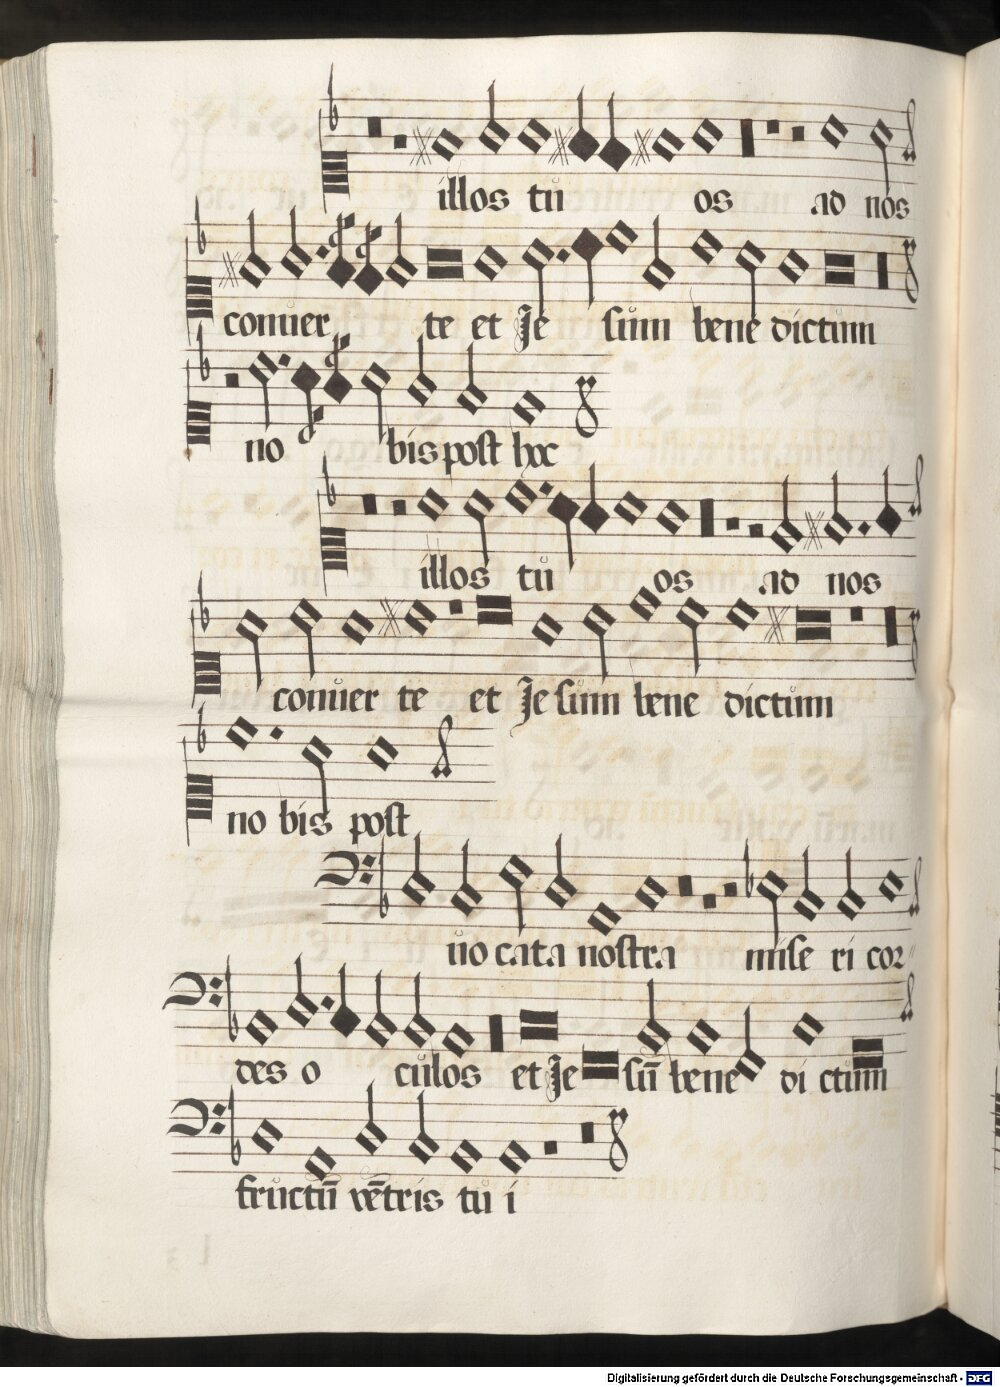 illos tu os ad nos
conuer te et Je sum bene dictum
no bis post hoc
illos tu os ad nos
conuer te et Je sum bene dictum
no bis post
uo cata nostra mise ri cor-
des o culos et Je sū bene di ctum
fructū vētris tu i
Digitalisierung gefördert durch die Deutsche Forschungsgemeinschaft - DFG